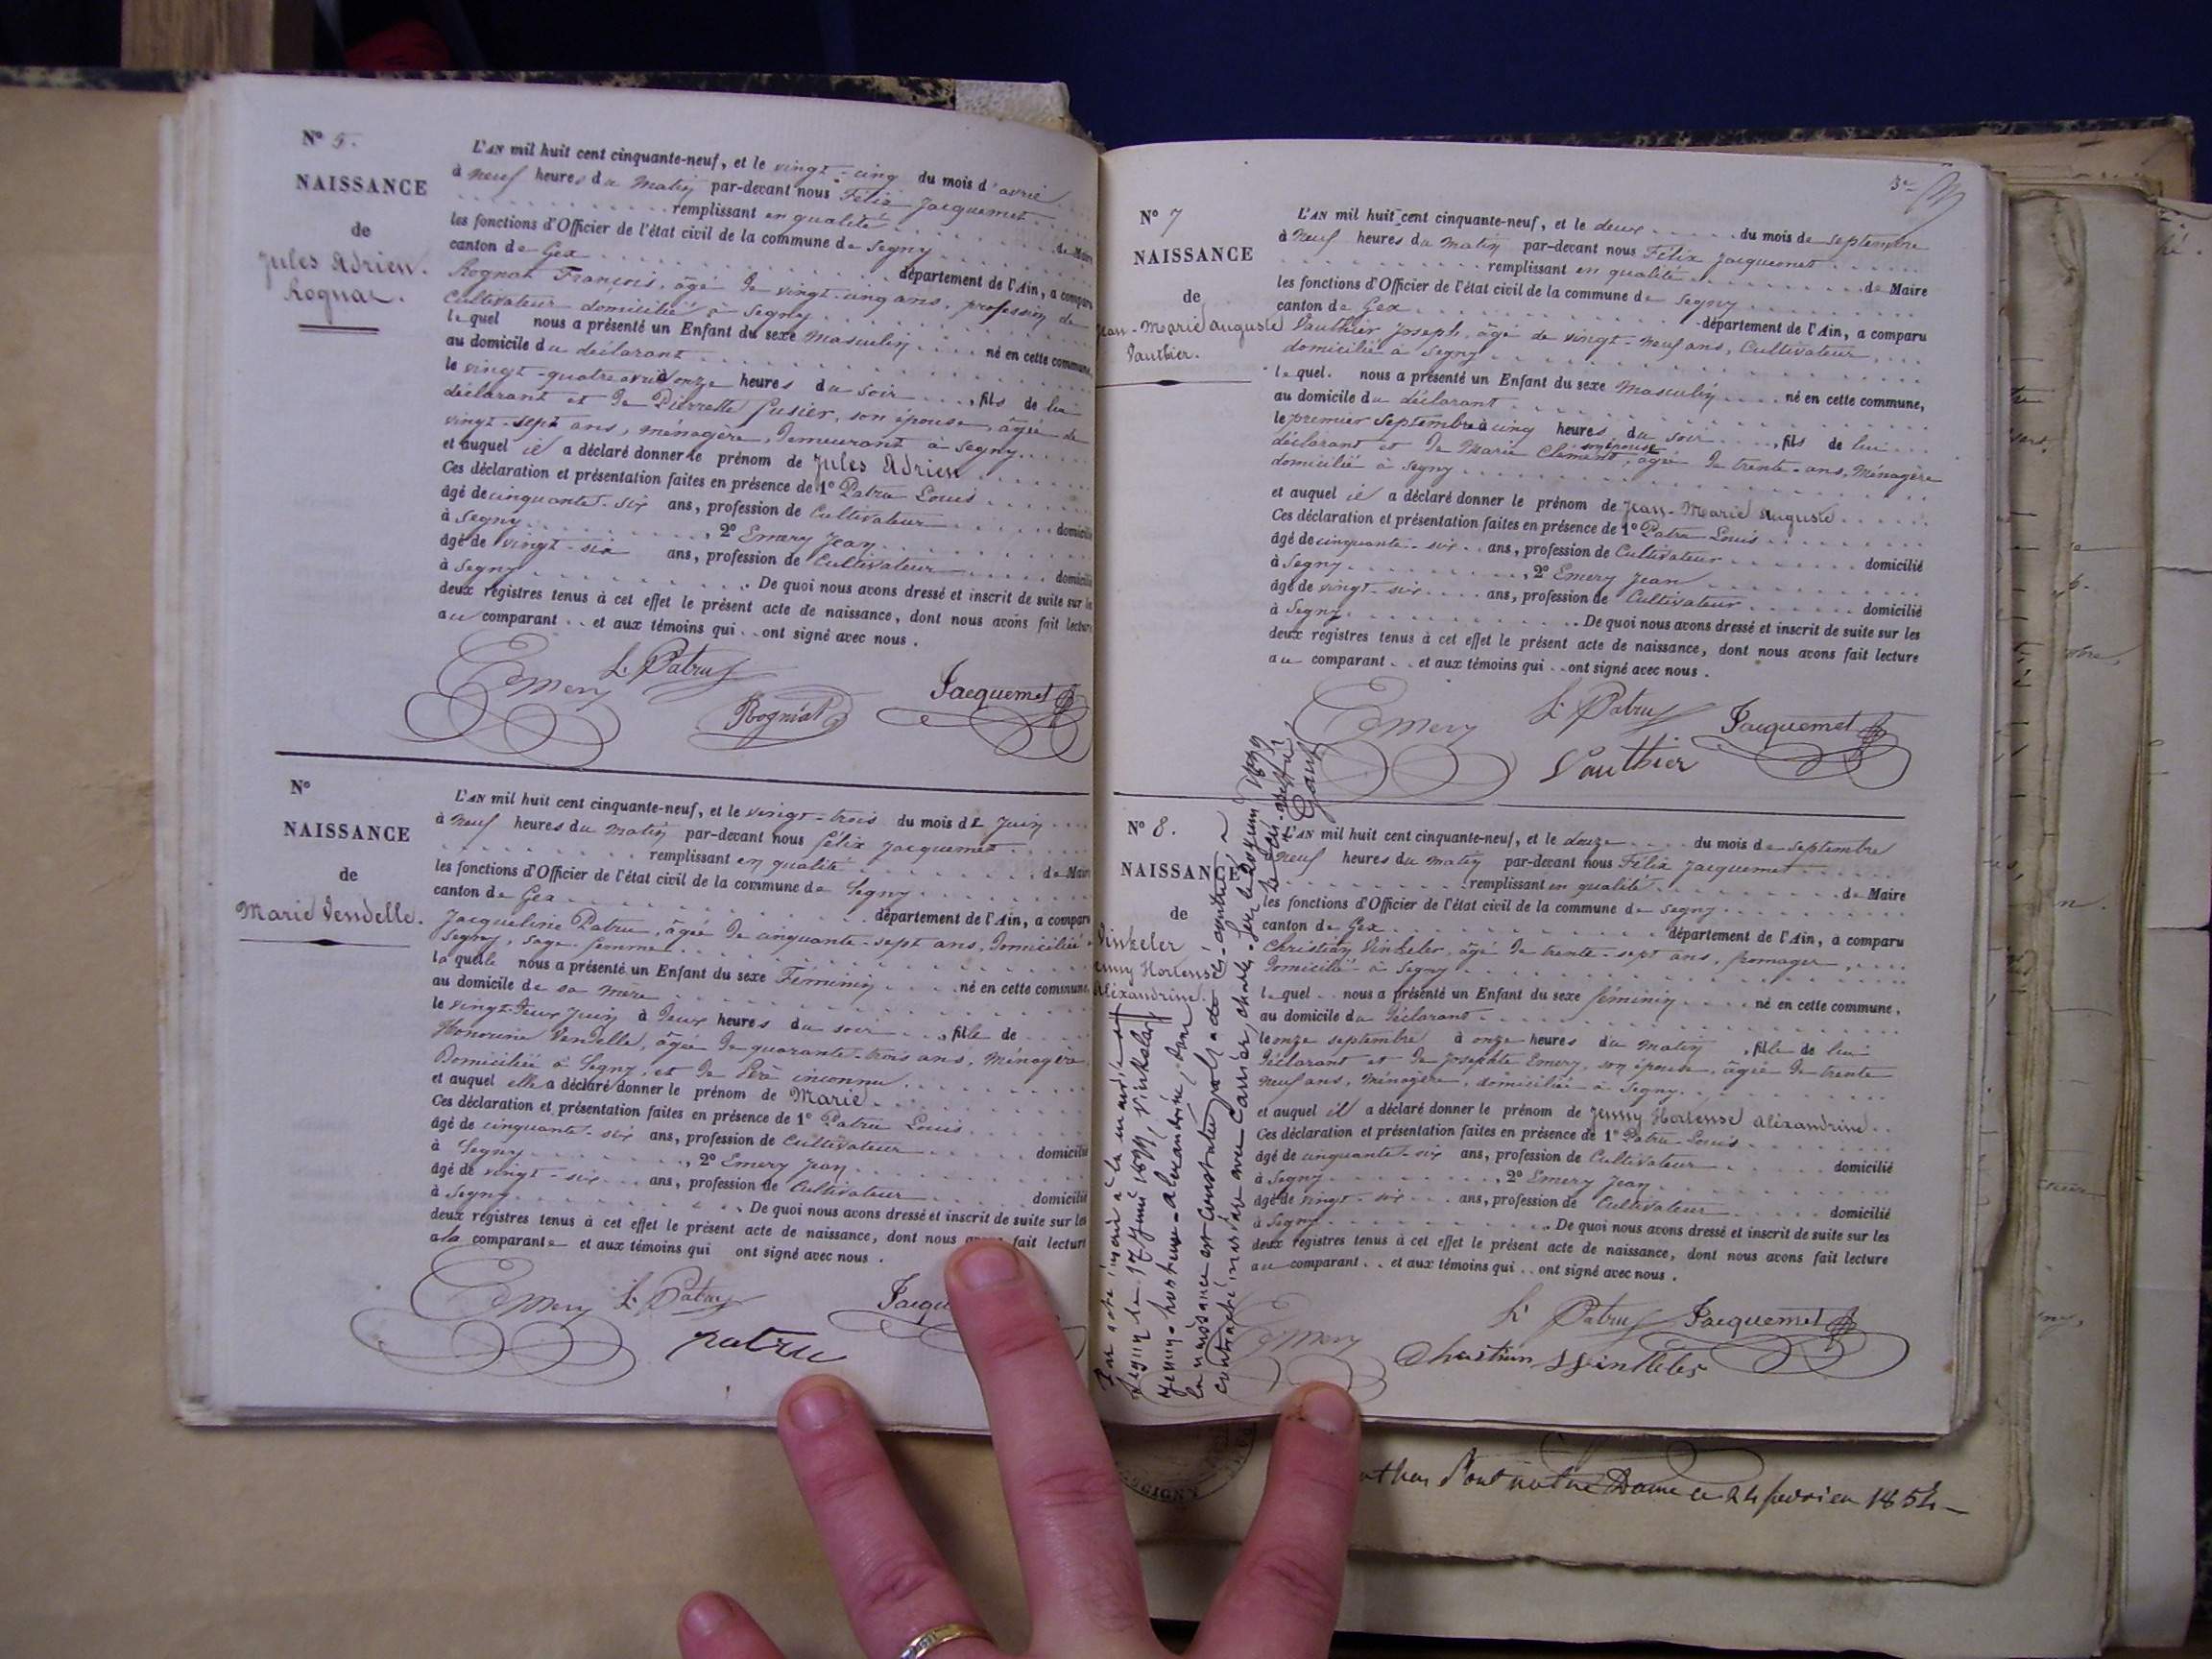 Nº 5.
NAISSANCE
de
Jules Adrien.
Rognat.
L'AN mil huit cent cinquante-neuf, et le vingt-cinq du mois d'avril
à neuf heures du matin par-devant nous Félix Jacquemet
remplissant en qualité de Maire
les fonctions d'Officier de l'état civil de la commune de Segny
canton de Gex département de l'Ain, a comparu
Rognat François, âgé de vingt-cinq ans, profession de
Cultivateur domicilié à Segny
lequel nous a présenté un Enfant du sexe Masculin né en cette commune,
au domicile du déclarant
le vingt-quatre avril à onze heures du soir, fils de lui
déclarant et de Pierrette Fusier, son épouse, âgée de
vingt-sept ans, ménagère, demeurant à Segny.
et auquel il a déclaré donner le prénom de Jules Adrien
Ces déclaration et présentation faites en présence de 1º Patru Louis
âgé de cinquante-six ans, profession de Cultivateur domicilié
à Segny, 2º Emery Jean
âgé de vingt-six ans, profession de Cultivateur domicilié
à Segny. De quoi nous avons dressé et inscrit de suite sur les
deux registres tenus à cet effet le présent acte de naissance, dont nous avons fait lecture
au comparant et aux témoins qui ont signé avec nous.
Emery L. Patru Rogniat Jacquemet
Nº
NAISSANCE
de
Marie Vendelle.
L'AN mil huit cent cinquante-neuf, et le vingt-trois du mois de Juin
à neuf heures du matin par-devant nous Félix Jacquemet
remplissant en qualité de Maire
les fonctions d'Officier de l'état civil de la commune de Segny
canton de Gex département de l'Ain, a comparu
Jacqueline Patru, âgée de cinquante-sept ans, domiciliée à
Segny, sage-femme
laquelle nous a présenté un Enfant du sexe Féminin né en cette commune,
au domicile de sa mère
le vingt-deux Juin à deux heures du soir, fille de
Honorine Vendelle, âgée de quarante-trois ans, ménagère
Domiciliée à Segny, et de Père inconnu
et auquel elle a déclaré donner le prénom de Marie.
Ces déclaration et présentation faites en présence de 1º Patru Louis
âgé de cinquante-six ans, profession de Cultivateur domicilié
à Segny, 2º Emery Jean
âgé de vingt-six ans, profession de Cultivateur domicilié
à Segny. De quoi nous avons dressé et inscrit de suite sur les
deux registres tenus à cet effet le présent acte de naissance, dont nous fait lecture
à la comparante et aux témoins qui ont signé avec nous.
Emery L. Patru Jacqu
patru
3e
Nº 7
NAISSANCE
de
Jean-Marie Auguste
Vauthier.
L'AN mil huit cent cinquante-neuf, et le deux du mois de septembre
à neuf heures du matin par-devant nous Félix Jacquemet
remplissant en qualité de Maire
les fonctions d'Officier de l'état civil de la commune de Segny
canton de Gex département de l'Ain, a comparu
Vauthier Joseph, âgé de vingt-neuf ans, Cultivateur
domicilié à Segny
lequel nous a présenté un Enfant du sexe Masculin né en cette commune,
au domicile du déclarant
le premier septembre à cinq heures du soir, fils de lui
déclarant et de Marie Clément son épouse, âgée de trente-ans, Ménagère
domiciliée à Segny
et auquel il a déclaré donner le prénom de Jean-Marie Auguste
Ces déclaration et présentation faites en présence de 1º Patru Louis
âgé de cinquante-six ans, profession de Cultivateur domicilié
à Segny, 2º Emery Jean
âgé de vingt-six ans, profession de Cultivateur domicilié
à Segny. De quoi nous avons dressé et inscrit de suite sur les
deux registres tenus à cet effet le présent acte de naissance, dont nous avons fait lecture
au comparant et aux témoins qui ont signé avec nous.
Emery L. Patru Jacquemet
Vauthier
Nº 8.
NAISSANCE
de
Vinkeler
Jenny Hortense
Alexandrine.
L'AN mil huit cent cinquante-neuf, et le douze du mois de septembre
à neuf heures du matin par-devant nous Félix Jacquemet
remplissant en qualité de Maire
les fonctions d'Officier de l'état civil de la commune de Segny
canton de Gex département de l'Ain, a comparu
Christian Vinkeler, âgé de trente-sept ans, fromager
domicilié à Segny
lequel nous a présenté un Enfant du sexe féminin né en cette commune,
au domicile du déclarant
le onze septembre à onze heures du matin, fille de lui
déclarant et de Josephte Emery, son épouse, âgée de trente
neuf ans, ménagère, domiciliée à Segny
et auquel il a déclaré donner le prénom de Jenny Hortense Alexandrine
Ces déclaration et présentation faites en présence de 1º Patru Louis
âgé de cinquante-six ans, profession de Cultivateur domicilié
à Segny, 2º Emery Jean
âgé de vingt-six ans, profession de Cultivateur domicilié
à Segny. De quoi nous avons dressé et inscrit de suite sur les
deux registres tenus à cet effet le présent acte de naissance, dont nous avons fait lecture
au comparant et aux témoins qui ont signé avec nous.
Emery L. Patru Jacquemet
Christian
Par acte inscrit à la mairie de
Segny le 17 Juin 1899, Vinkeler
Jenny-hortense-alexandrine, dont
la naissance est constatée par l'acte ci-contre, a
contracté mariage avec Carrier, Charles. Segny le
Dame le 24 février 1854